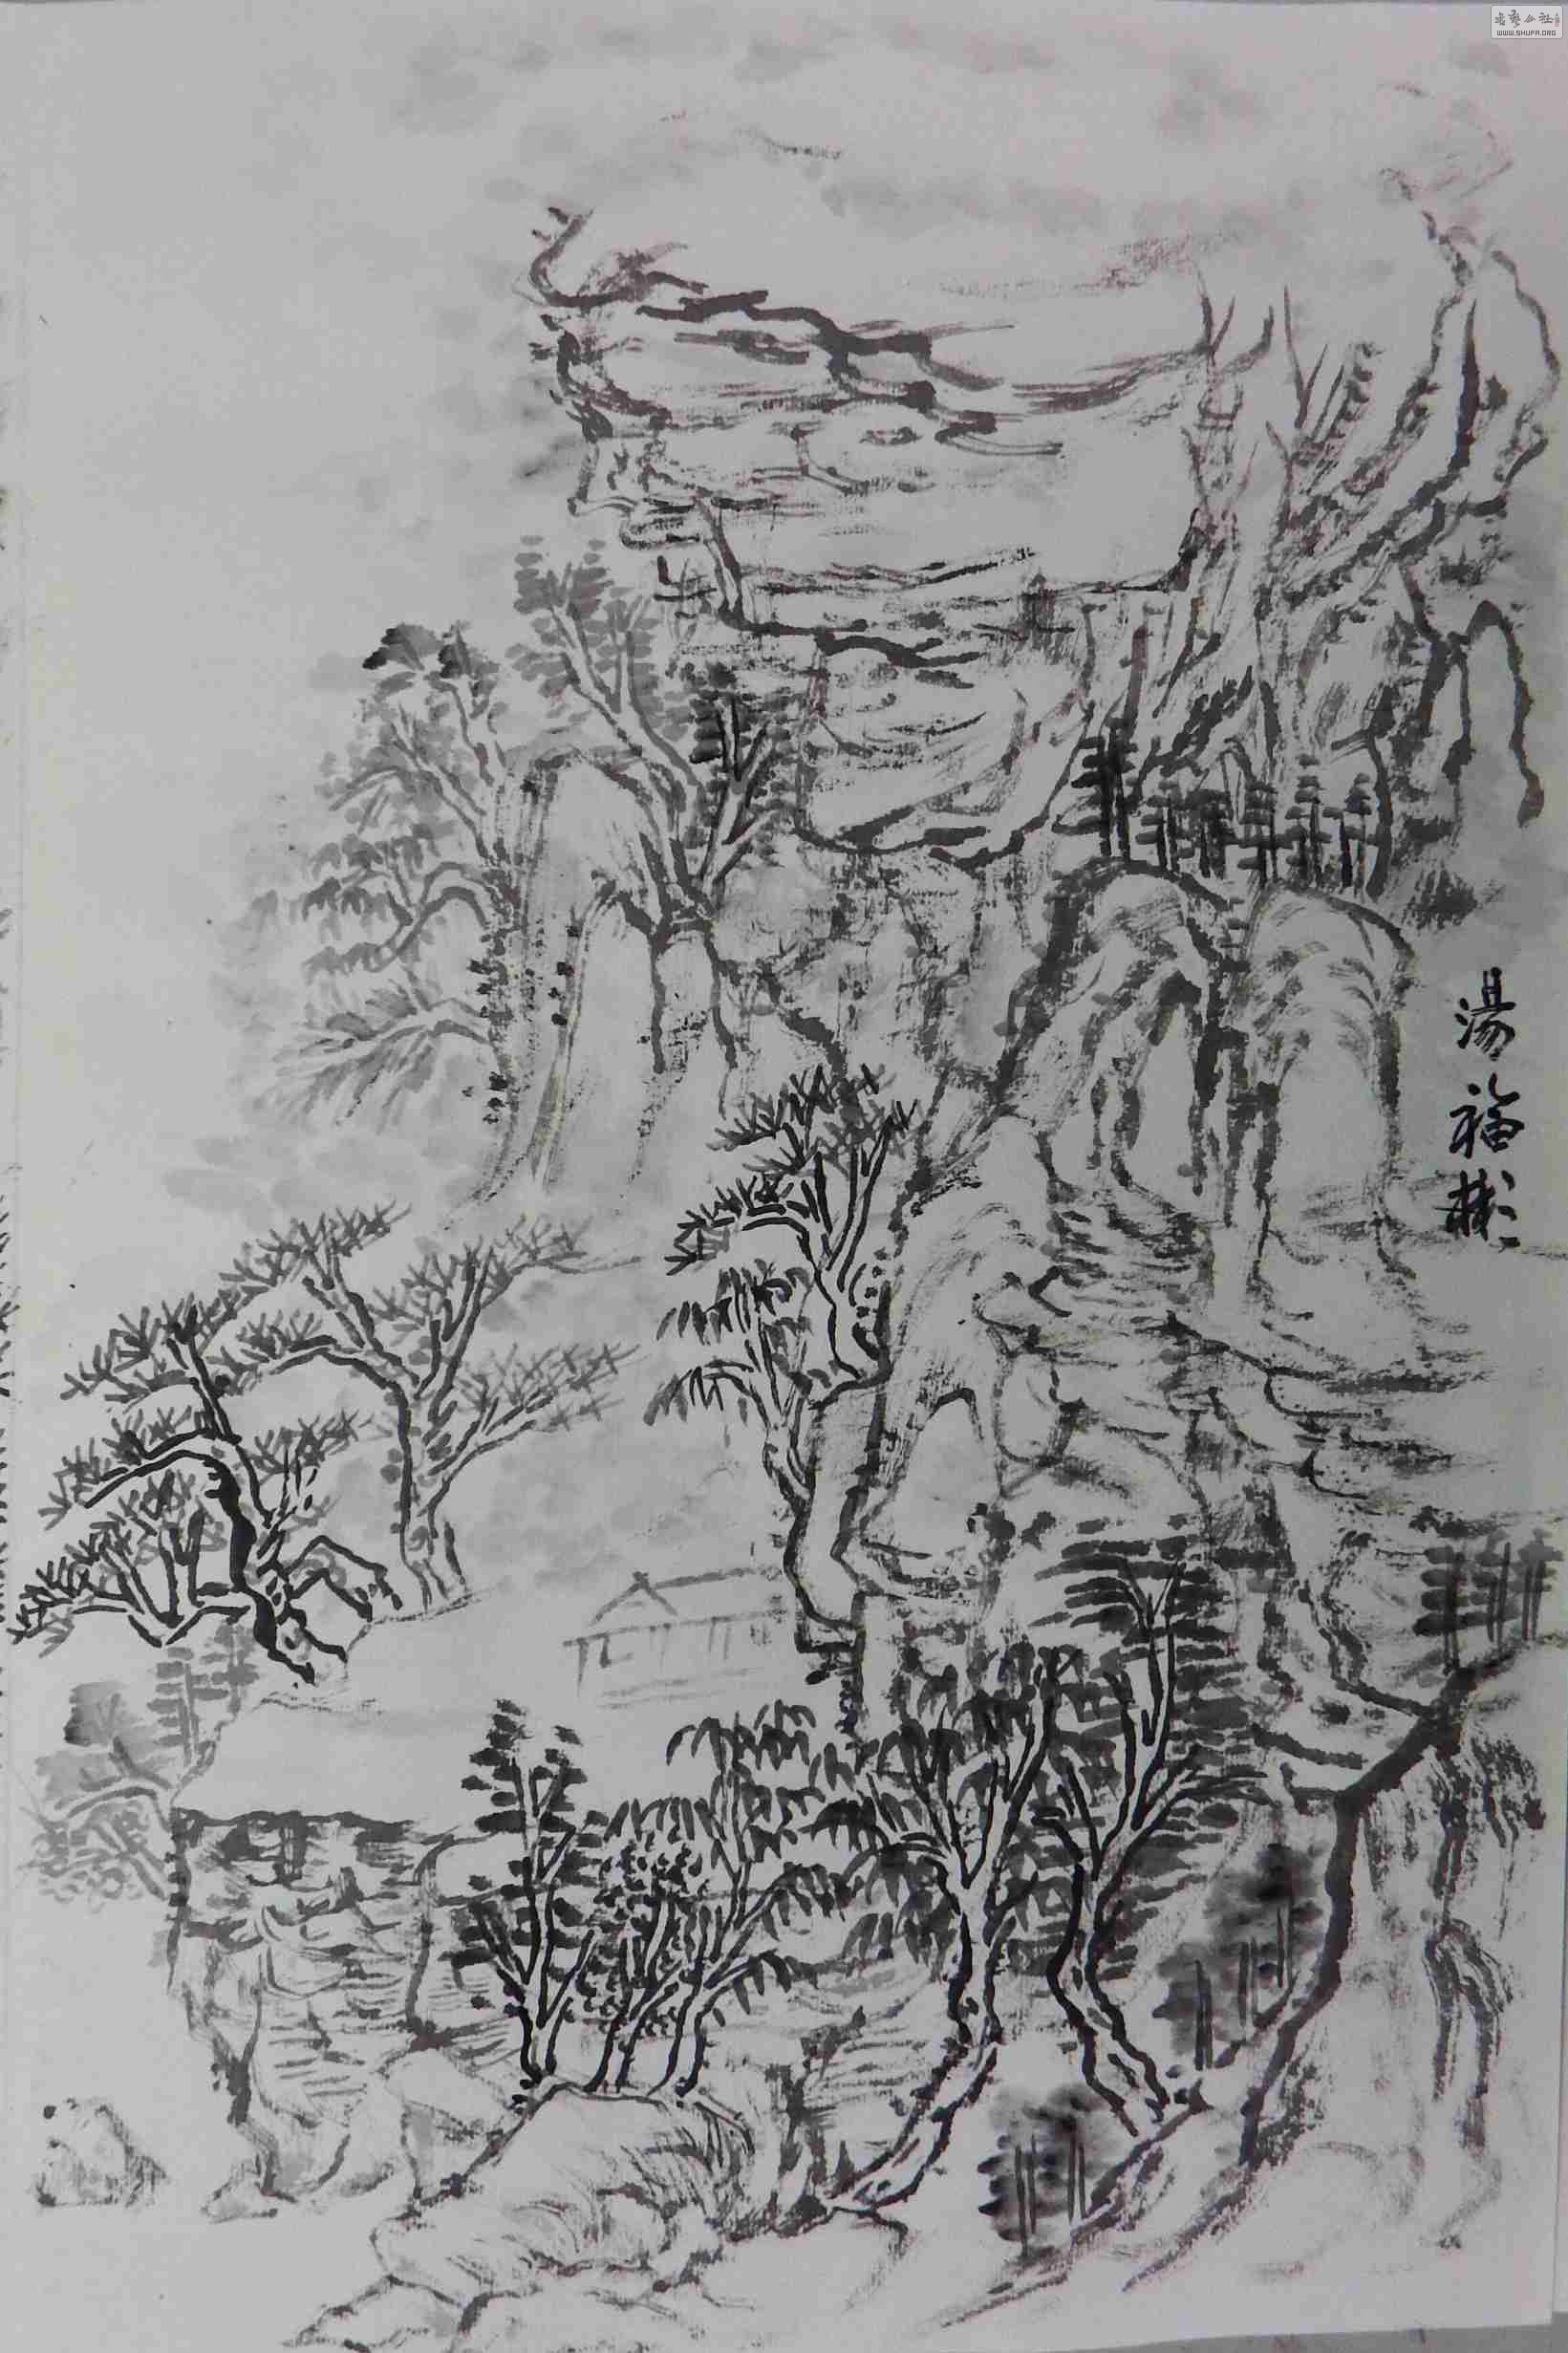 湯福彬
书艺公社
WWW.SHUFA.ORG